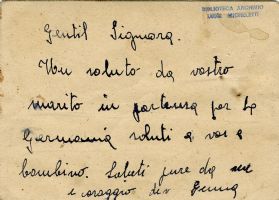 BIBLIOTECA ARCHIVIO
LUIGI MICHELETTI
Gentil Signora.
Un saluto da vostro
marito in partenza per la
Germania saluti a voi a
bambino. Saluti pure da me
e coraggio